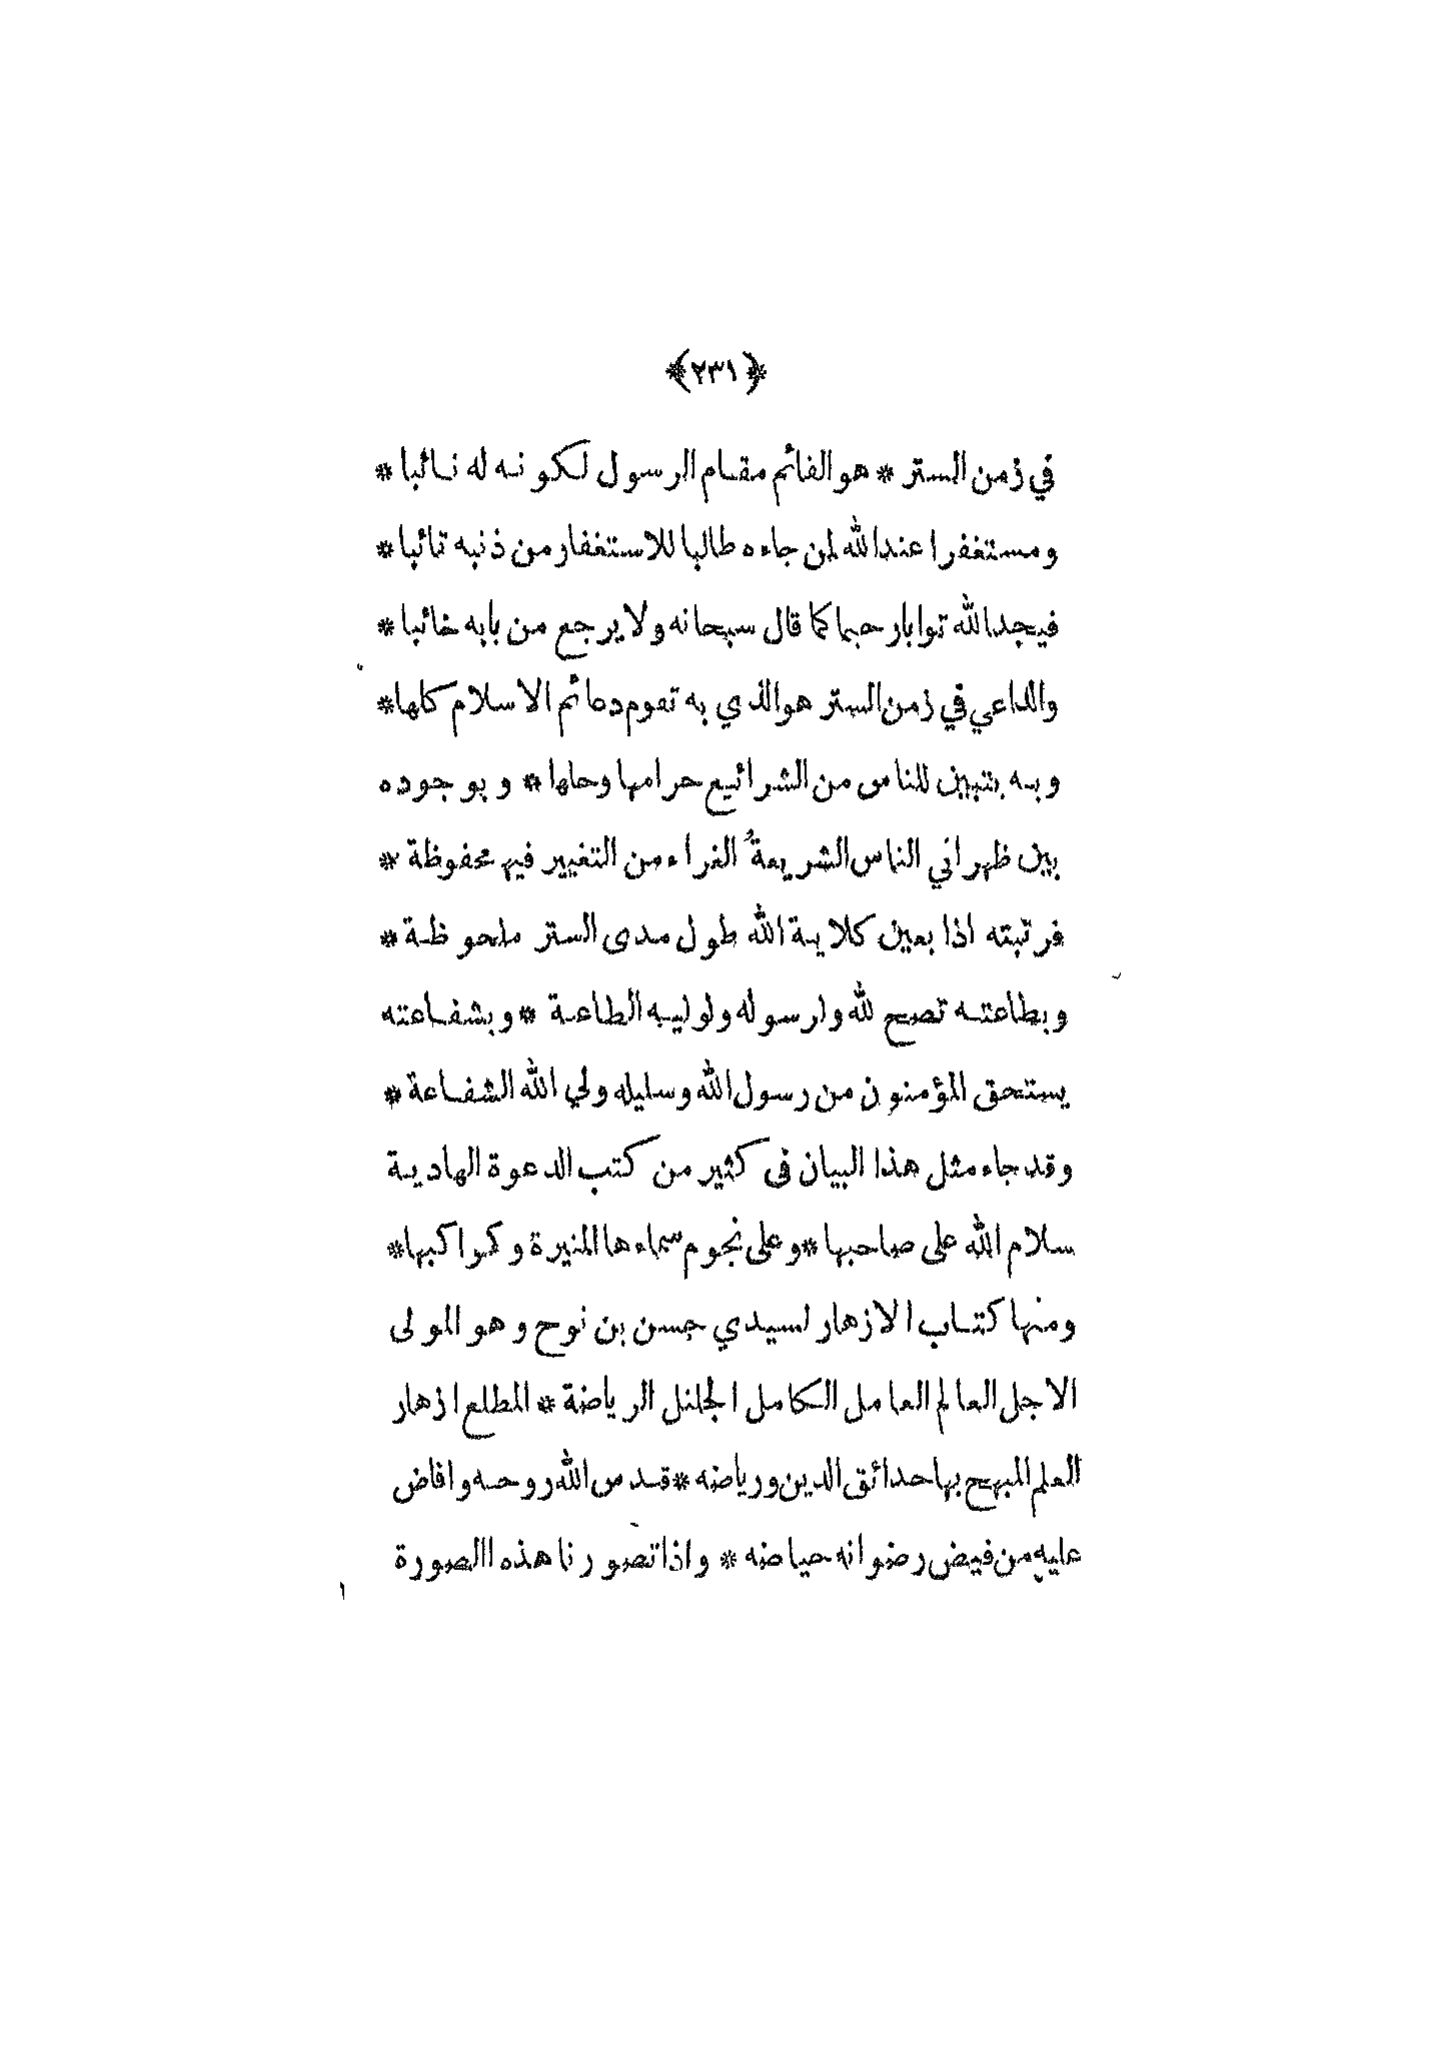 ﴿٢٣١﴾
في زمن الستر * هو القائم مقام الرسول لكونه له نائبا *
ومستغفرا عند الله لمن جاءه طالبا للاستغفار من ذنبه تائبا *
فيجد الله توابا رحيما كما قال سبحانه ولا يرجع من بابه خائبا *
والداعي في زمن الستر هو الذي به تقوم دعائم الاسلام كلها *
وبه يتبين للناس من الشرائع حرامها وحلها * وبوجوده
بين ظهراني الناس الشريعةُ الغراء من التغيير فيهم محفوظة *
فرتبته اذا بعين كلاية الله طول مدى الستر ملحوظة *
وبطاعته تصح لله ولرسوله ولوليه الطاعة * وبشفاعته
يستحق المؤمنون من رسول الله وسليله ولي الله الشفاعة *
وقد جاء مثل هذا البيان في كثير من كتب الدعوة الهادية
سلام الله على صاحبها * وعلى نجوم سماءها المنيرة وكواكبها *
ومنها كتاب الازهار لسيدي حسن بن نوح وهو المولى
الاجل العالم العامل الكامل الجليل الرياضة * المطلع ازهار
العلم المبهج بها حدائق الدين ورياضه * قدس الله روحه وافاض
عليه من فيض رضوانه حياضه * واذا تصورنا هذه االصورة